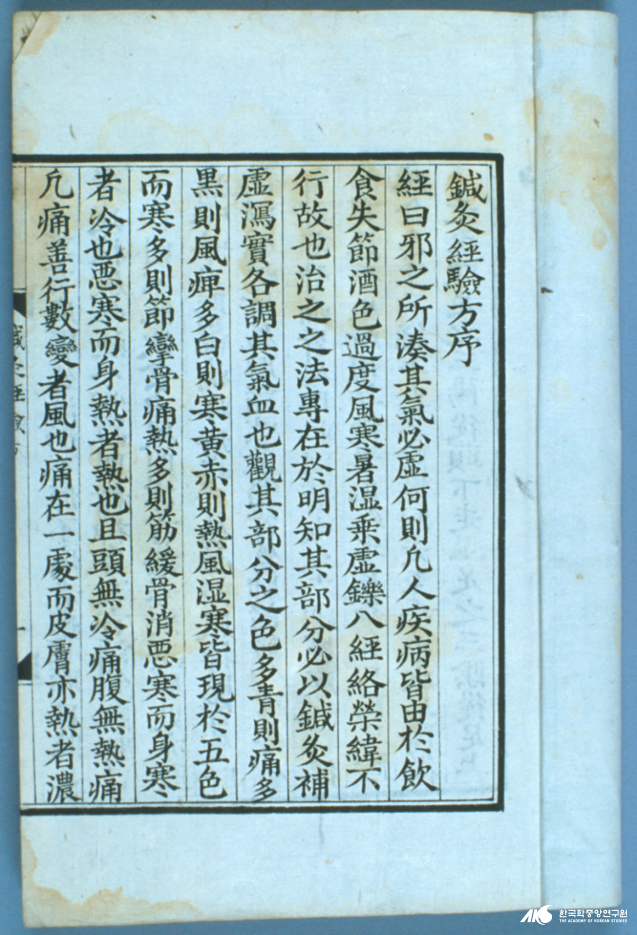 鍼灸經驗方序
經曰邪之所湊其氣必虛何則凡人疾病皆由於飮
食失節酒色過度風寒暑湿乗虛鑠入經絡榮緯不
行故也治之之法專在於明知其部分必以鍼灸補
虛瀉實各調其氣血也觀其部分之色多青則痛多
黑則風痺多白則寒黄赤則熱風湿寒皆現於五色
而寒多則節攣骨痛熱多則筋緩骨消惡寒而身寒
者冷也惡寒而身熱者熱也且頭無冷痛腹無熱痛
凡痛善行數變者風也痛在一處而皮膚亦熱者濃
鍼灸經驗方
一
AKS 한국학중앙연구원
THE ACADEMY OF KOREAN STUDIES